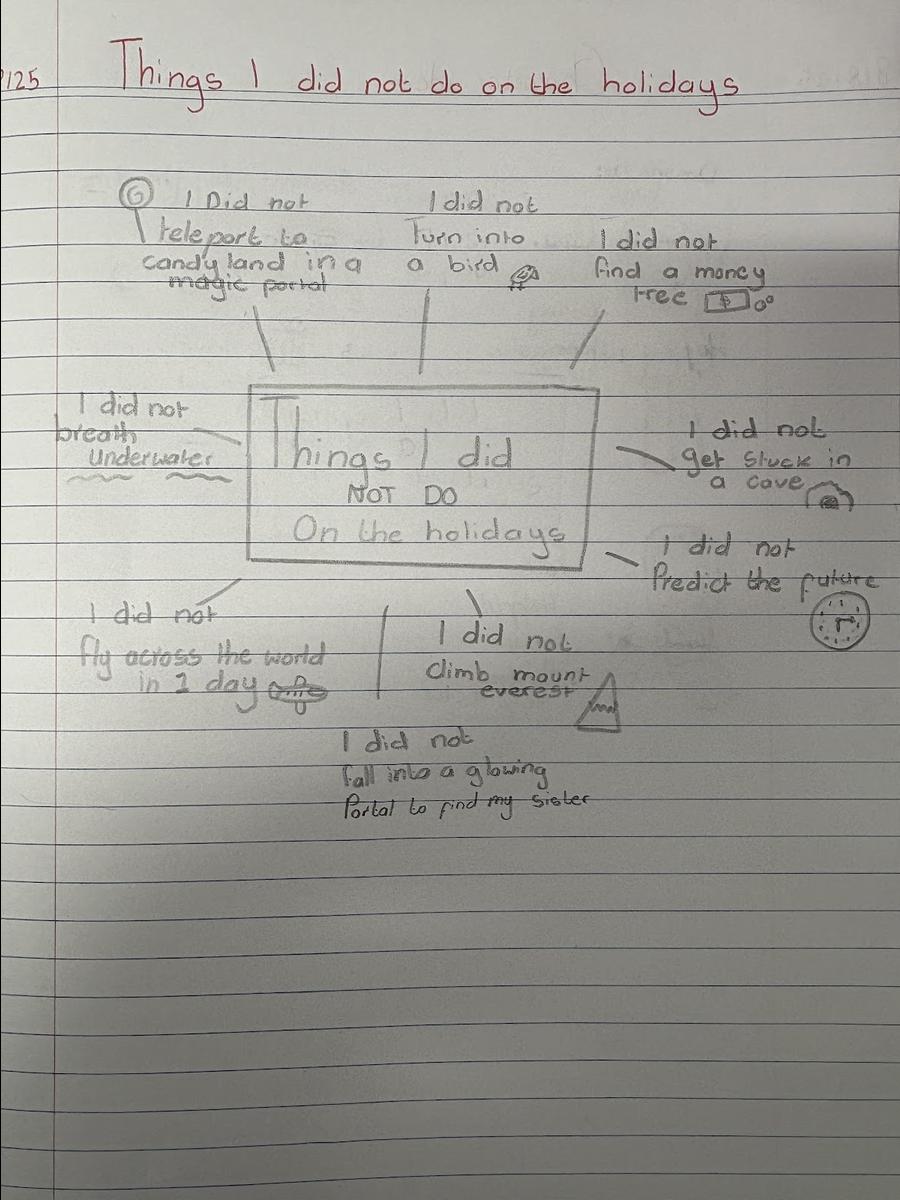 Things I did not do on the holidays
I Did not
teleport to
candy land in a
magic portal
I did not
Turn into
a bird
I did not
find a money
tree $
I did not
breath
Underwater
Things I did
NOT DO
On the holidays
I did not
get stuck in
a cave
I did not
Predict the future
I did not
fly across the world
in 1 day
I did not
Climb mount
everest
I did not
fall into a glowing
Portal to find my sister